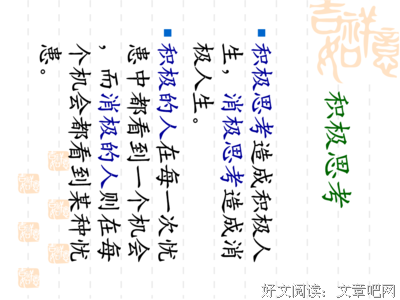 积极思考
积极思考造成积极人
生，消极思考造成消
极人生。
积极的人在每一次忧
患中都看到一个机会
，而消极的人则在每
个机会都看到某种忧
患。
吉祥如意
好文阅读：文章吧网